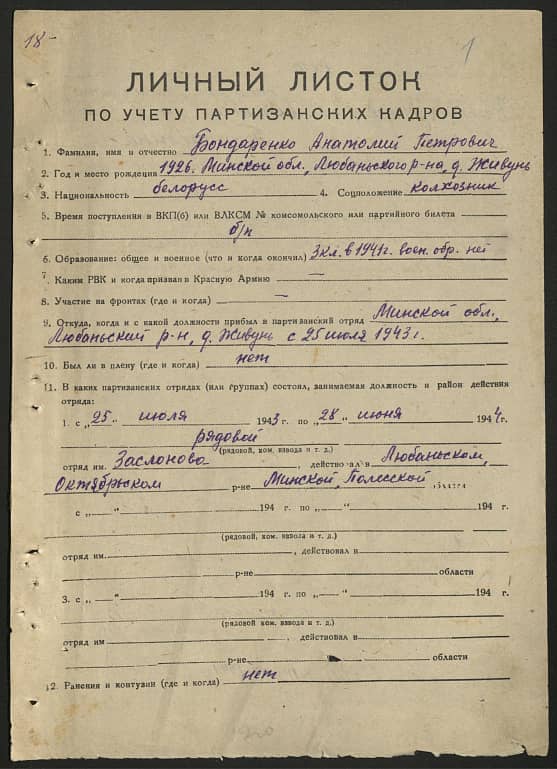 18-
1
ЛИЧНЫЙ ЛИСТОК
ПО УЧЕТУ ПАРТИЗАНСКИХ КАДРОВ
1. Фамилия, имя и отчество Бондаренко Анатолий Петрович
2. Год и место рождения 1926. Минской обл., Любаньского р-на, д. Живунь
3. Национальность белорусс 4. Соцположение колхозник
5. Время поступления в ВКП(б) или ВЛКСМ № комсомольского или партийного билета
б/п
6. Образование: общее и военное (что и когда окончил) 3 кл. в 1941г. воен. обр. нет
7. Каким РВК и когда призван в Красную Армию —
8. Участие на фронтах (где и когда) —
9. Откуда, когда и с какой должности прибыл в партизанский отряд Минской обл.,
Любаньский р-н, д. Живунь с 25 июля 1943 г.
10. Был ли в плену (где и когда) нет
11. В каких партизанских отрядах (или группах) состоял, занимаемая должность и район действия
отряда:
1. с „25" июля 1943 г. по „28" июня 1944 г.
рядовой
(рядовой, ком. взвода и т. д.)
отряд им. Заслонова, действовал в Любаньском,
Октябрьском р-не Минской, Полесской области
с „ " 194 г. по „ " 194 г.
(рядовой, ком. взвода и т. д.)
отряд им. , действовал в
р-не области
3. с „ " 194 г. по „ " 194 г.
(рядовой, ком. взвода и т. д.)
отряд им , действовал в
р-не области
12. Ранения и контузии (где и когда) нет